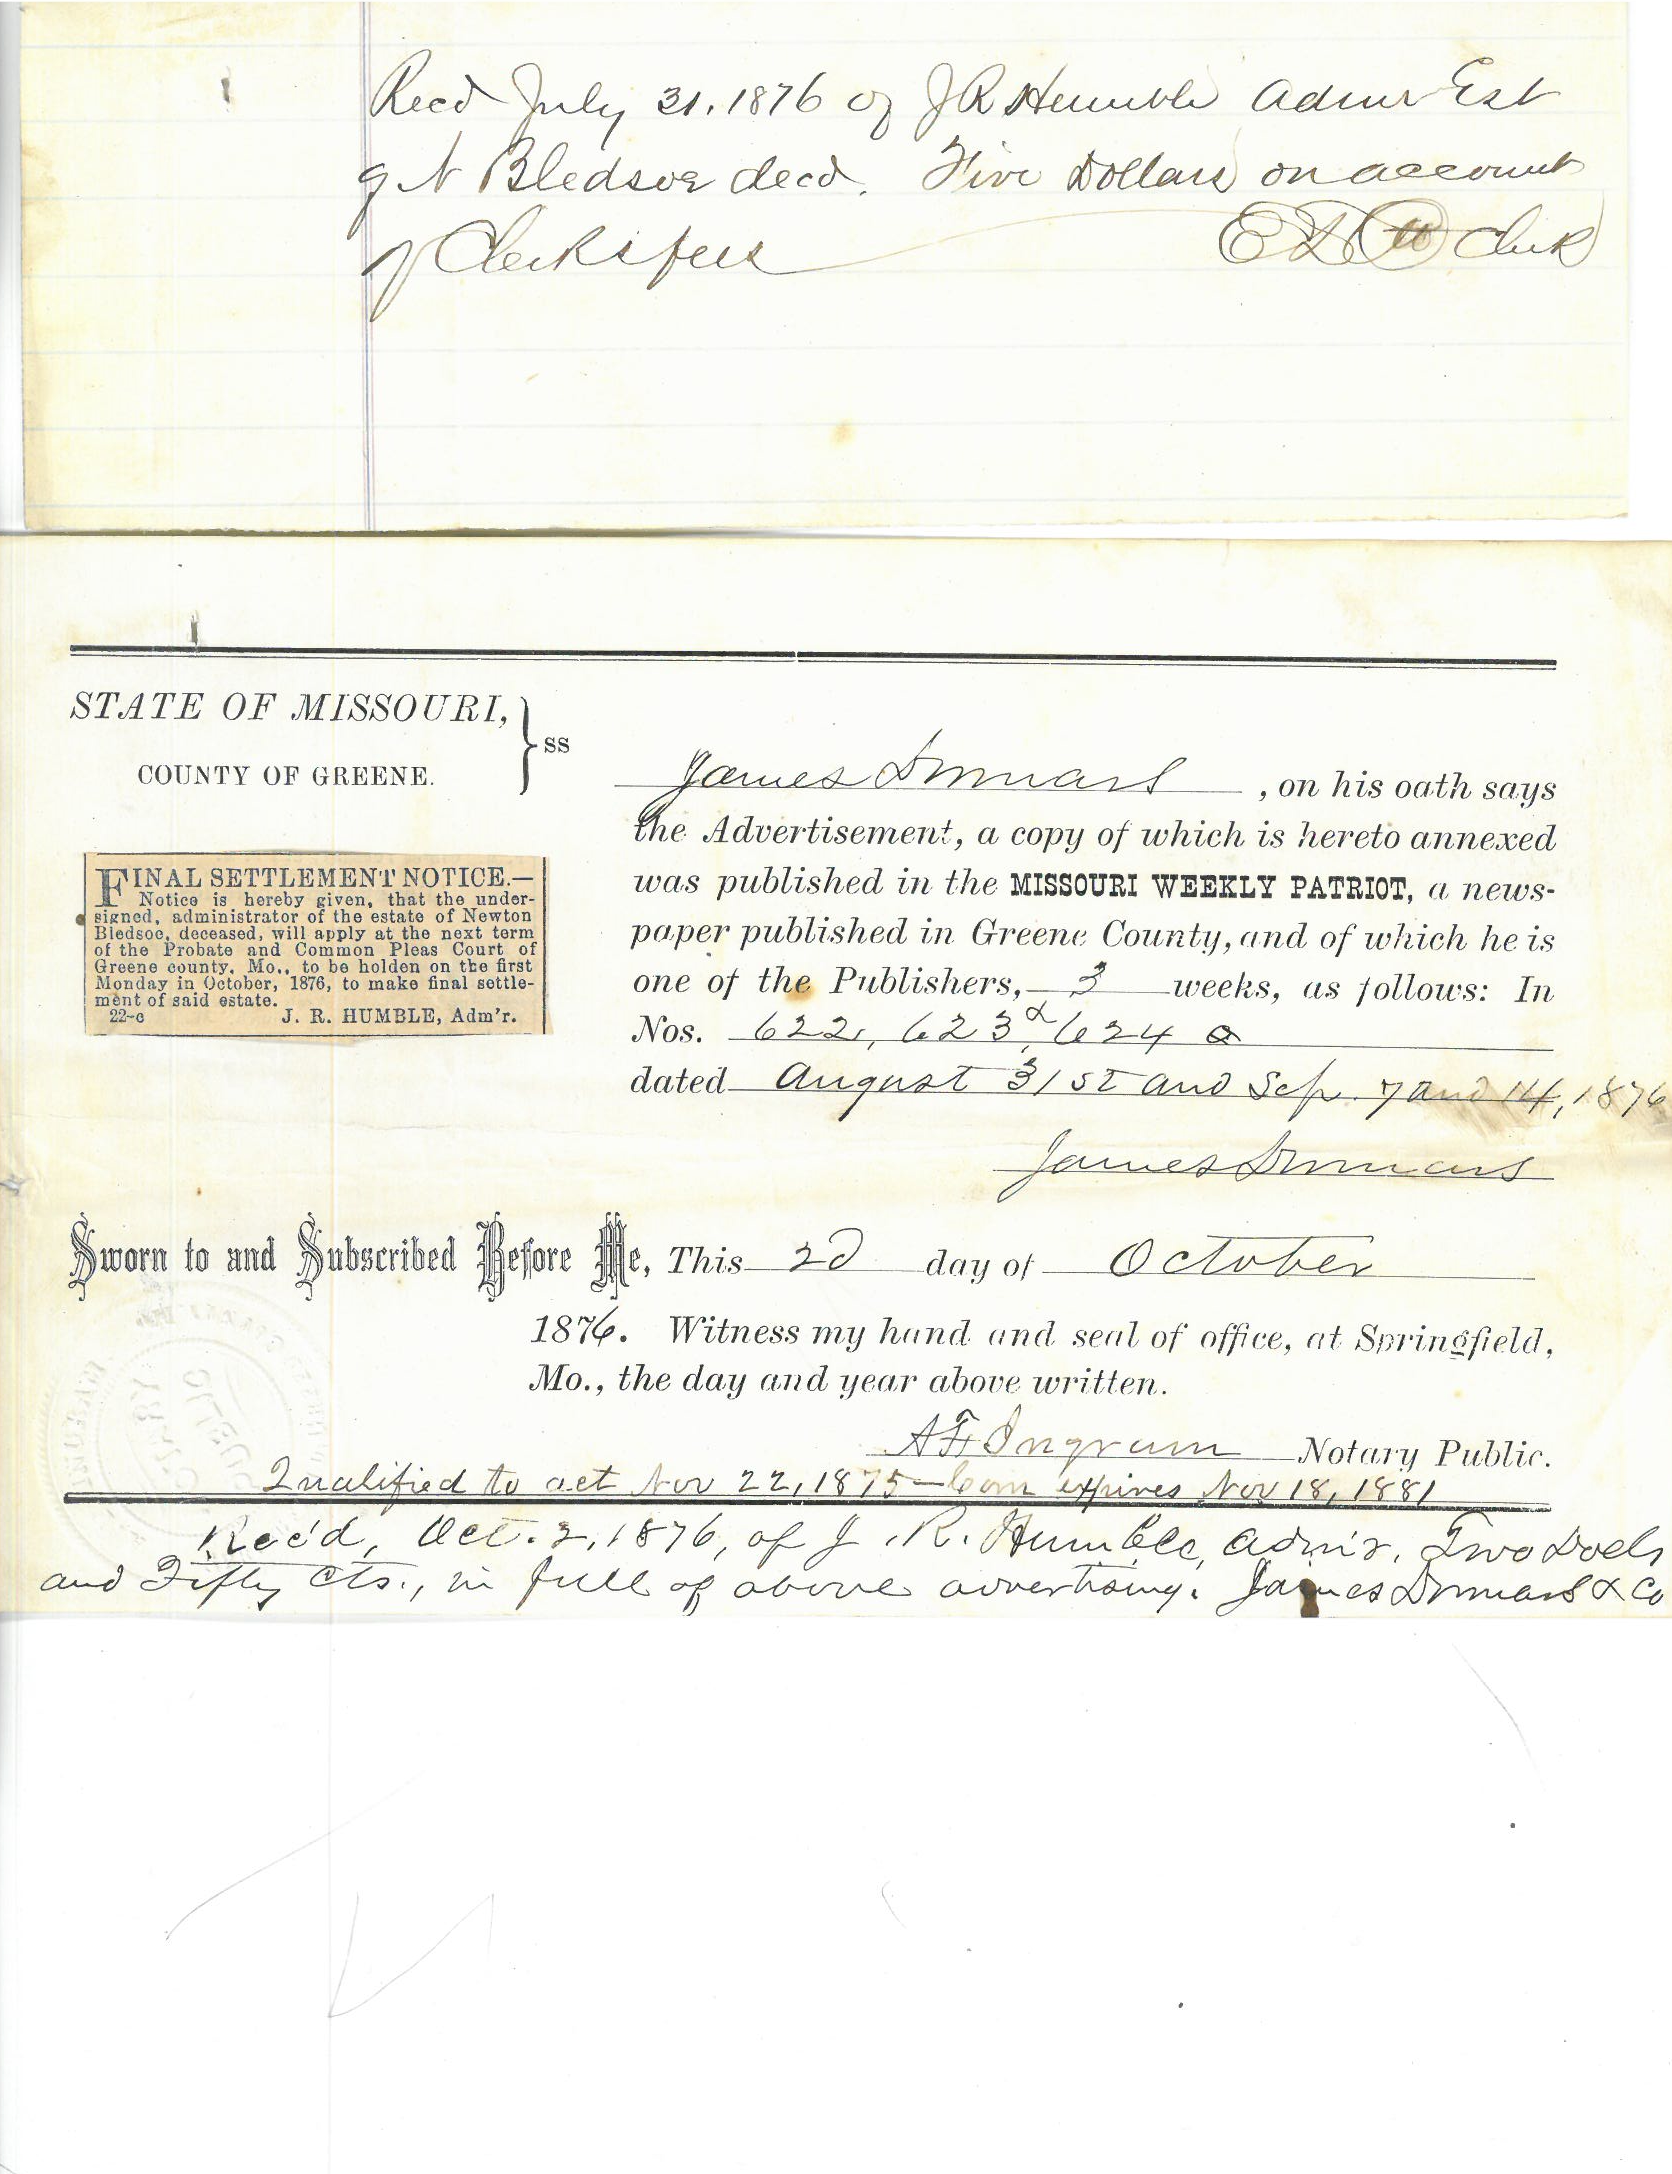 Recd July 31, 1876 of J R Humble Admr Est
of N Bledsoe decd. Five Dollars on account
of Clerks fees
Clerk
STATE OF MISSOURI,
COUNTY OF GREENE.
} ss
James Inmars, on his oath says
the Advertisement, a copy of which is hereto annexed
was published in the MISSOURI WEEKLY PATRIOT, a news-
paper published in Greene County, and of which he is
one of the Publishers, 3 weeks, as follows: In
Nos. 622, 623, & 624
dated August 31st and Sep. 7 and 14, 1876
James
FINAL SETTLEMENT NOTICE.—
Notice is hereby given, that the under-
signed, administrator of the estate of Newton
Bledsoe, deceased, will apply at the next term
of the Probate and Common Pleas Court of
Greene county, Mo., to be holden on the first
Monday in October, 1876, to make final settle-
ment of said estate.
22-c J. R. HUMBLE, Adm'r.
Sworn to and Subscribed Before Me, This 2d day of October
1876. Witness my hand and seal of office, at Springfield,
Mo., the day and year above written.
A F Ingram Notary Public.
Qualified to act Nov 22, 1875 – Com expires Nov 18, 1881
Rec'd, Oct. 2, 1876, of J. R. Humble, Adm'r, Two Dols
and Fifty Cts., in full of above advertising. James & Co